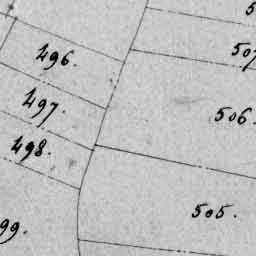 496.
507
497.
506.
498.
505.
99.